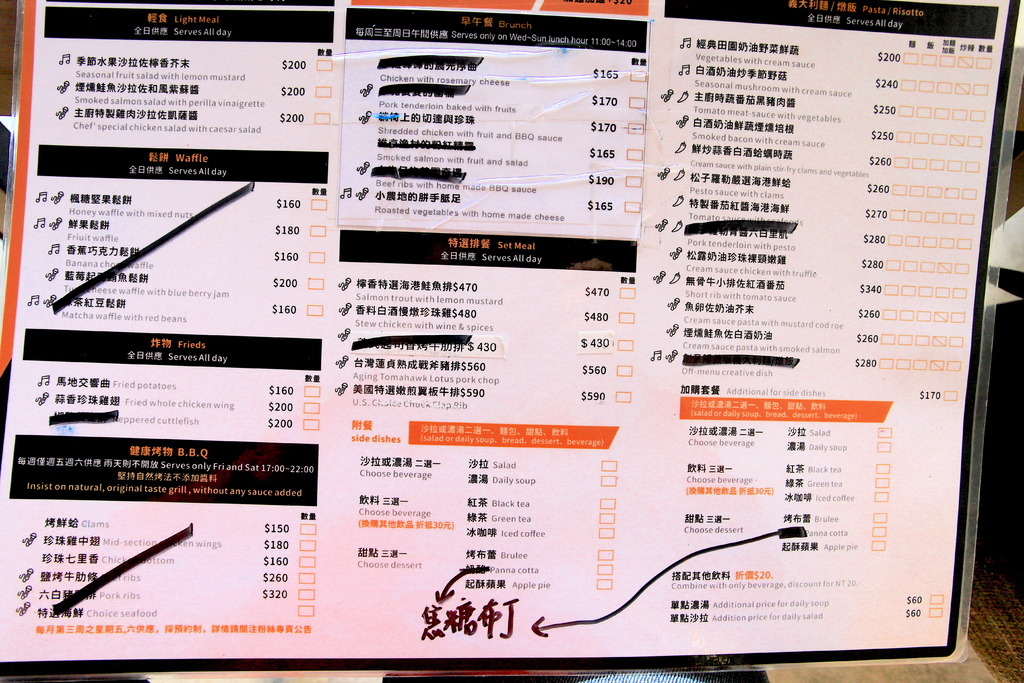 輕食 Light Meal
全日供應 Serves All day
數量
季節水果沙拉佐檸香芥末 $200
Seasonal fruit salad with lemon mustard
煙燻鮭魚沙拉佐和風紫蘇醬 $200
Smoked salmon salad with perilla vinaigrette
主廚特製雞肉沙拉佐凱薩醬 $200
Chef' special chicken salad with caesar salad
鬆餅 Waffle
全日供應 Serves All day
數量
楓糖堅果鬆餅 $160
Honey waffle with mixed nuts
鮮果鬆餅 $180
Friuit waffle
香蕉巧克力鬆餅 $160
Banana waffle
藍莓起 鮪魚鬆餅 $200
cheese waffle with blue berry jam
茶紅豆鬆餅 $160
Matcha waffle with red beans
炸物 Frieds
全日供應 Serves All day
數量
馬地交響曲 Fried potatoes $160
蒜香珍珠雞翅 Fried whole chicken wing $200
Peppered cuttlefish $200
健康烤物 B.B.Q
每週僅週五週六供應 雨天則不開放 Serves only Fri and Sat 17:00~22:00
堅持自然烤法不添加醬料
Insist on natural, original taste grill, without any sauce added
烤鮮蛤 Clams $150
珍珠雞中翅 Mid-section chicken wings $180
珍珠七里香 bottom $160
鹽烤牛肋條 ribs $260
六白豬 排 Pork ribs $320
特選海鮮 Choice seafood
每月第三周之星期五,六供應，採預約制，詳情請關注粉絲專頁公告
早午餐 Brunch
每周三至周日午間供應 Serves only on Wed~Sun lunch hour 11:00~14:00
數量
晨光序曲 $165
Chicken with rosemary cheese
$170
Pork tenderloin baked with fruits
鞦韆上的切達與珍珠 $170
Shredded chicken with fruit and BBQ sauce
$165
Smoked salmon with fruit and salad
$190
Beef ribs with home made BBQ sauce
小農地的胼手胝足 $165
Roasted vegetables with home made cheese
特選排餐 Set Meal
全日供應 Serves All day
數量
檸香特選海港鮭魚排$470 $470
Salmon trout with lemon mustard
香料白酒慢燉珍珠雞$480 $480
Stew chicken with wine & spices
烤牛肋排$ 430 $ 430
台灣蓮貞熟成戰斧豬排$560 $560
Aging Tomahawk Lotus pork chop
美國特選嫩煎翼板牛排$590 $590
U.S. Choice Chuck Flap Rib
附餐
side dishes
沙拉或濃湯二選一、麵包、甜點、飲料
(salad or daily soup, bread, dessert, beverage)
沙拉或濃湯 二選一 沙拉 Salad
Choose beverage 濃湯 Daily soup
飲料 三選一 紅茶 Black tea
Choose beverage 綠茶 Green tea
(換購其他飲品 折抵30元) 冰咖啡 Iced coffee
甜點 三選一 烤布蕾 Brulee
Choose dessert 奶酪 Panna cotta
起酥蘋果 Apple pie
焦糖布丁
義大利麵 / 燉飯 Pasta / Risotto
全日供應 Serves All day
麵 飯 加麵 加飯 炒辣 數量
經典田園奶油野菜鮮蔬 $200
Vegetables with cream sauce
白酒奶油炒季節野菇 $240
Seasonal mushroom with cream sauce
主廚時蔬番茄黑豬肉醬 $250
Tomato meat-sauce with vegetables
白酒奶油鮮蔬煙燻培根 $250
Smoked bacon with cream sauce
鮮炒蒜香白酒蛤蠣時蔬 $260
Cream sauce with plain stir-fry clams and vegetables
松子羅勒嚴選海港鮮蛤 $260
Pesto sauce with clams
特製番茄紅醬海港海鮮 $270
Tomato sauce with seafoods
羅勒青醬六白里肌 $280
Pork tenderloin with pesto
松露奶油珍珠裸頸嫩雞 $280
Cream sauce chicken with truffle
無骨牛小排佐紅酱番茄 $340
Short rib with tomato sauce
魚卵佐奶油芥末 $260
Cream sauce pasta with mustard cod roe
煙燻鮭魚佐白酒奶油 $260
Cream sauce pasta with smoked salmon
$280
Off-menu creative dish
加購套餐 Additional for side dishes $170
沙拉或濃湯二選一、麵包、甜點、飲料
(salad or daily soup, bread, dessert, beverage)
沙拉或濃湯 二選一 沙拉 Salad
Choose beverage 濃湯 Daily soup
飲料 三選一 紅茶 Black tea
Choose beverage 綠茶 Green tea
(換購其他飲品 折抵30元) 冰咖啡 Iced coffee
甜點 三選一 烤布蕾 Brulee
Choose dessert Panna cotta
起酥蘋果 Apple pie
搭配其他飲料 折價$20.
Combine with only beverage, discount for NT 20.
單點濃湯 Additional price for daily soup $60
單點沙拉 Addition price for daily salad $60